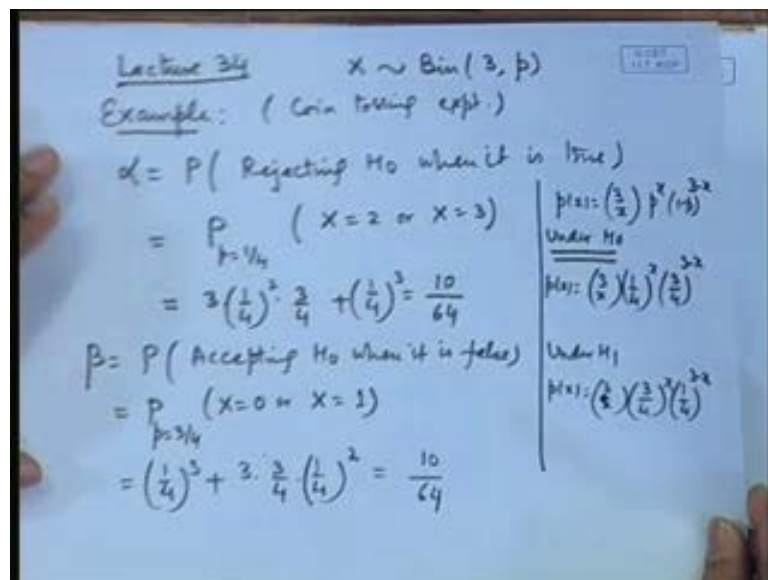 Lecture 34 X ~ Bin(3, p)
Example: (Coin tossing expt.)
α = P(Rejecting H₀ when it is true)
= P_{p=1/4} (X=2 or X=3)
= 3(1/4)²·3/4 + (1/4)³ = 10/64
β = P(Accepting H₀ when it is false)
= P_{p=3/4} (X=0 or X=1)
= (1/4)³ + 3·3/4·(1/4)² = 10/64
p(x) = (3 x) p^x (1-p)^{3-x}
Under H₀
p(x) = (3 x)(1/4)^x (3/4)^{3-x}
Under H₁
p(x) = (3 x)(3/4)^x (1/4)^{3-x}